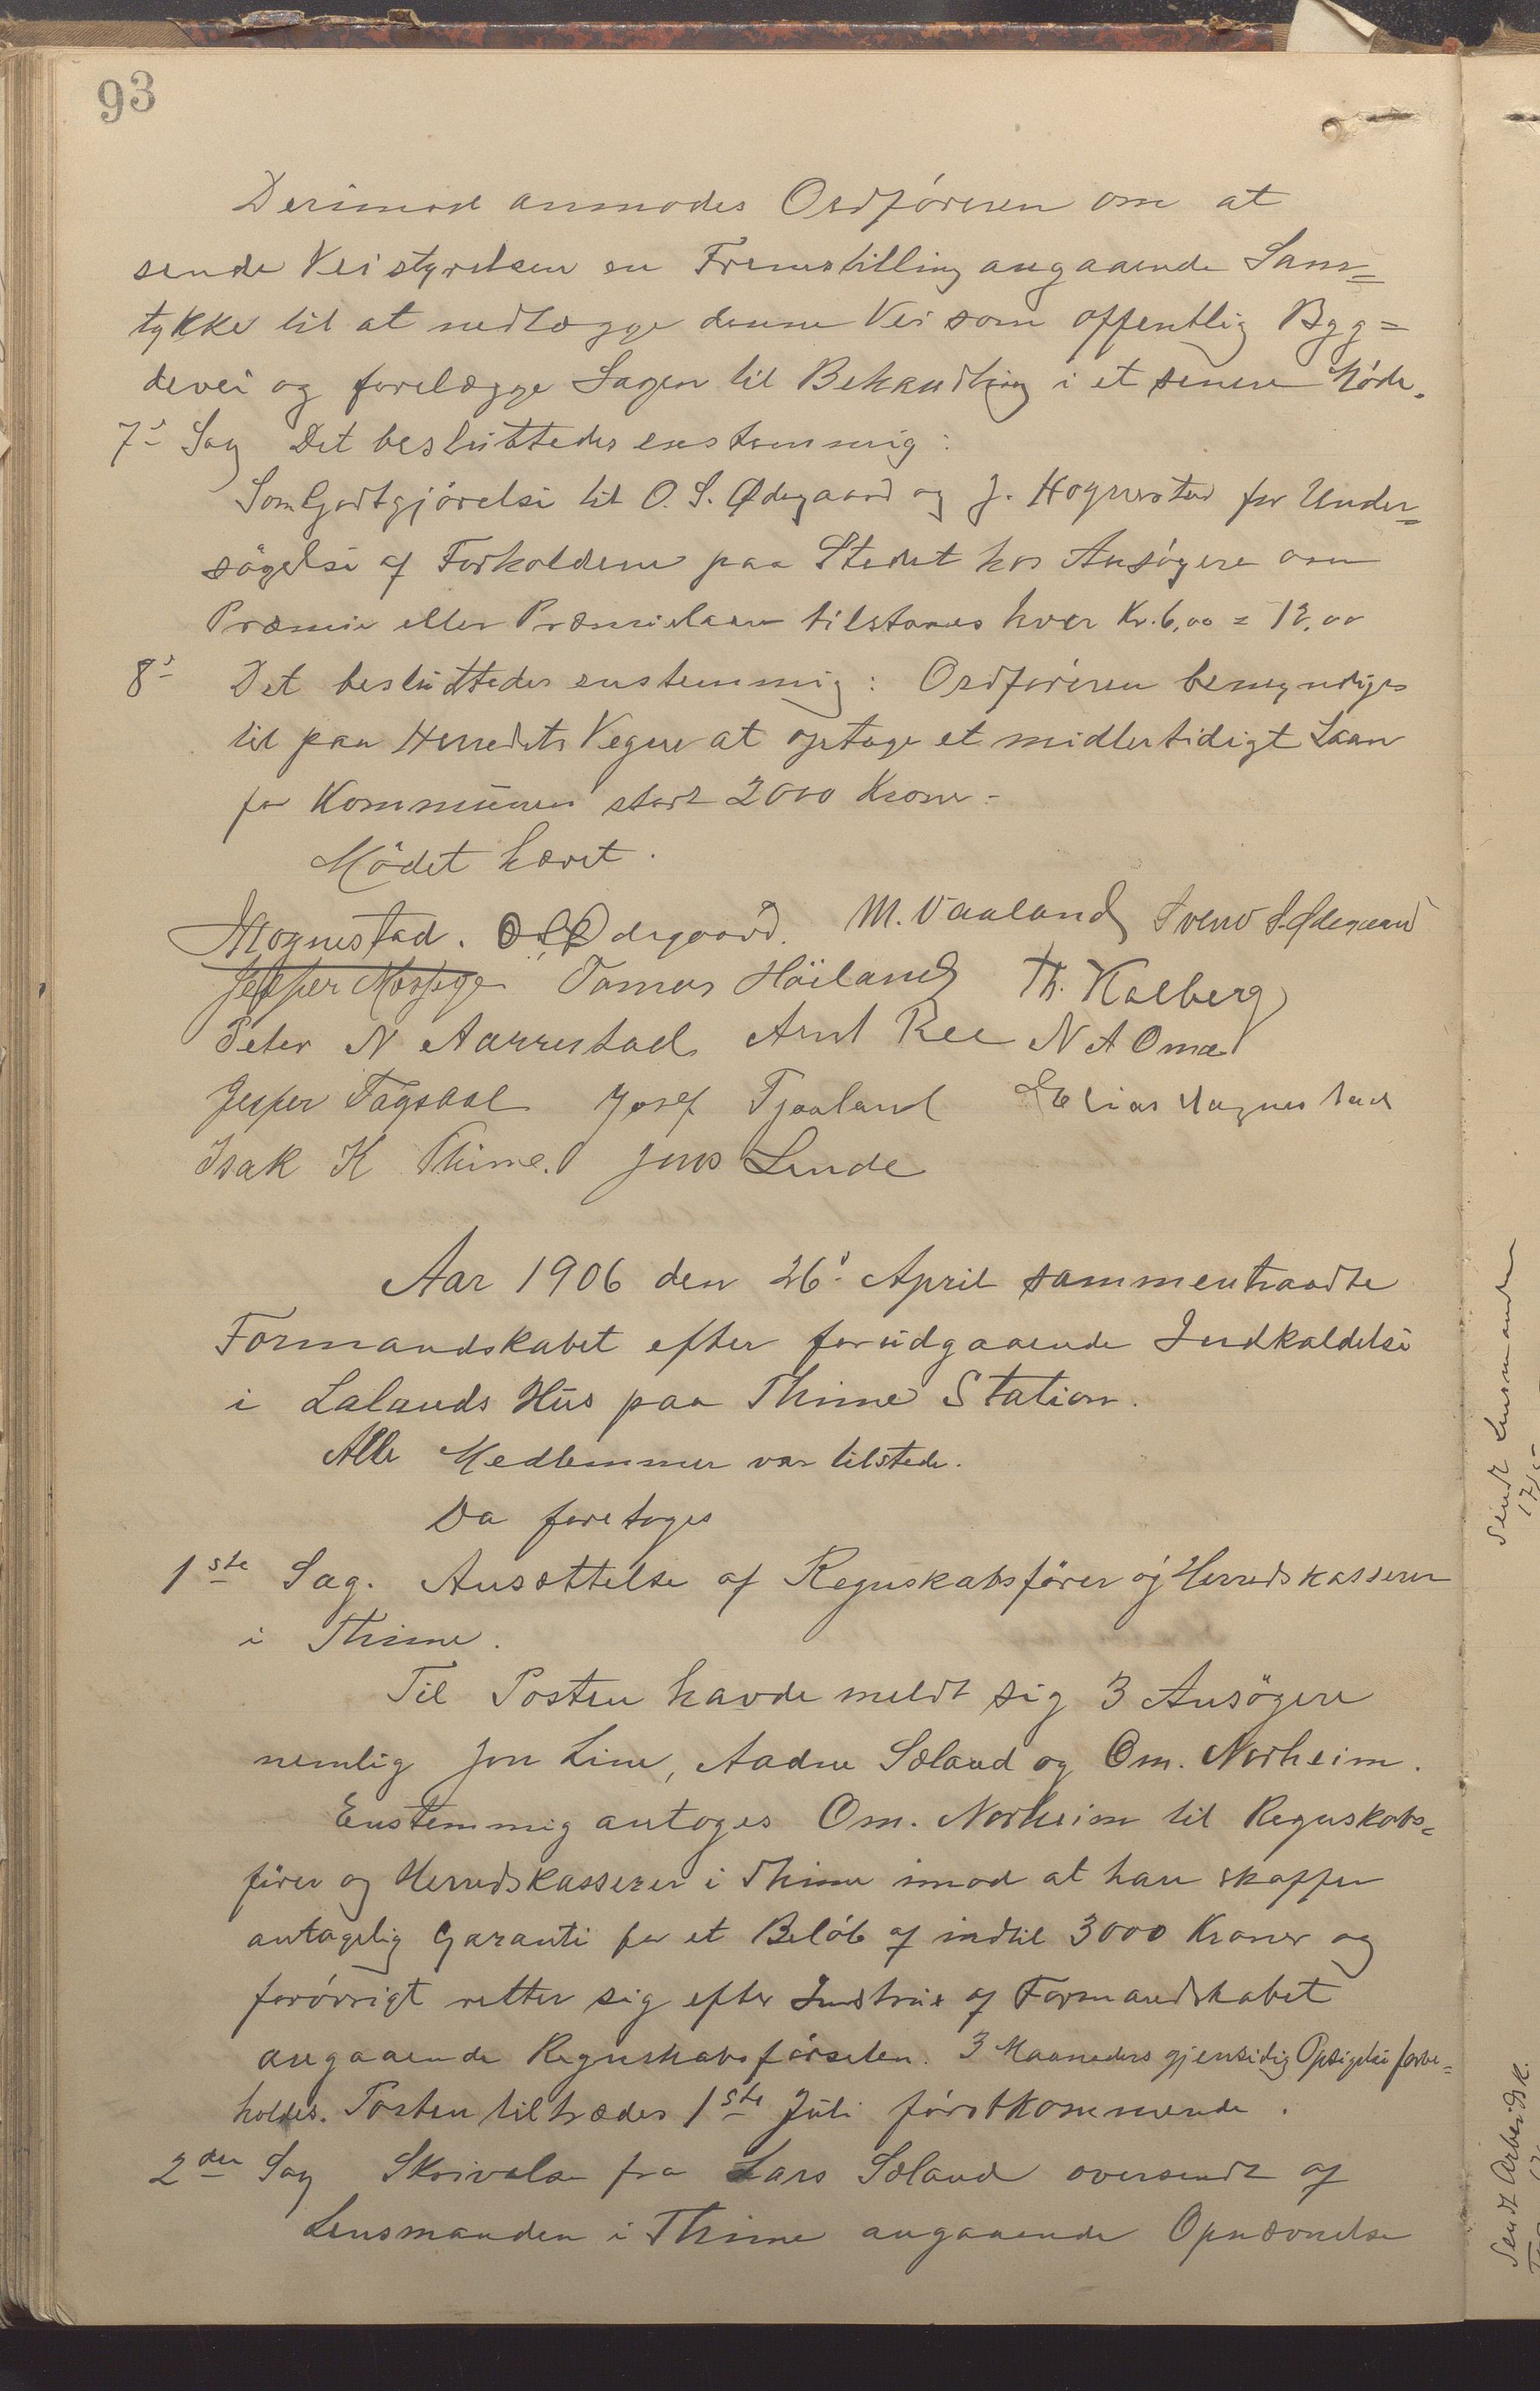 93
Derimod anmodes Ordføreren om at
sende Veistyrelsen en Fremstilling angaaende Sam=
tykke til at nedlægge denne Vei som offentlig Byg=
devei og forelægge Sagen til Behandling i et senere Møde.
7' Sag Det besluttedes enstemmig:
Som Godtgjørelse til O. S. Ødegaard og J. Hognestad for Under=
søgelse af Forholdene paa Stedet hos Ansøgere om
Præmie eller Præmielaan tilstaaes hver Kr. 6,00 = 12,00
8' Det besluttedes enstemmig: Ordføreren bemyndiges
til paa Herredets Vegne at optage et midlertidigt Laan
for Kommunen stort 2000 Kroner-
Mødet hævet.
J Hognestad. O S Ødegaard. M. Vaaland Svend S. Ødegaard
Jesper Mossige Tomas Höiland Th. Kalberg
Peter N Aarrestad Arnt Ree N A Omdal
Jesper Fagsdal Josef Tjaaland Elias Hognestad
Isak K Thime. Jens Lende
Aar 1906 den 26' April sammentraadte
Formandskabet efter forudgaaende Indkaldelse
i Lalands Hus paa Thime Station.
Alle Medlemmer var tilstede.
Da foretoges
1ste Sag. Ansættelse af Regnskabsfører og Herredskasserer
i Thime.
Til Posten havde meldt sig 3 Ansøgere
nemlig Jon Line, Aadne Sæland og Om. Norheim.
Enstemmig antoges Om. Norheim til Regnskabs=
fører og Herredskasserer i Thime imod at han skaffer
antagelig Garanti for et Beløb af indtil 3000 Kroner og
forøvrigt retter sig efter Instrux af Formandskabet
angaaende Regnskabsførselen. 3 Maaneders gjensidig Opsigelse forbe=
holdes. Posten tiltrædes 1ste Juli førstkommende.
2den Sag Skrivelse fra Lars Sæland oversendt af
Lensmanden i Thime angaaende Opnævnelse
Sendt Lensmanden
Sendt Arbeidsk.